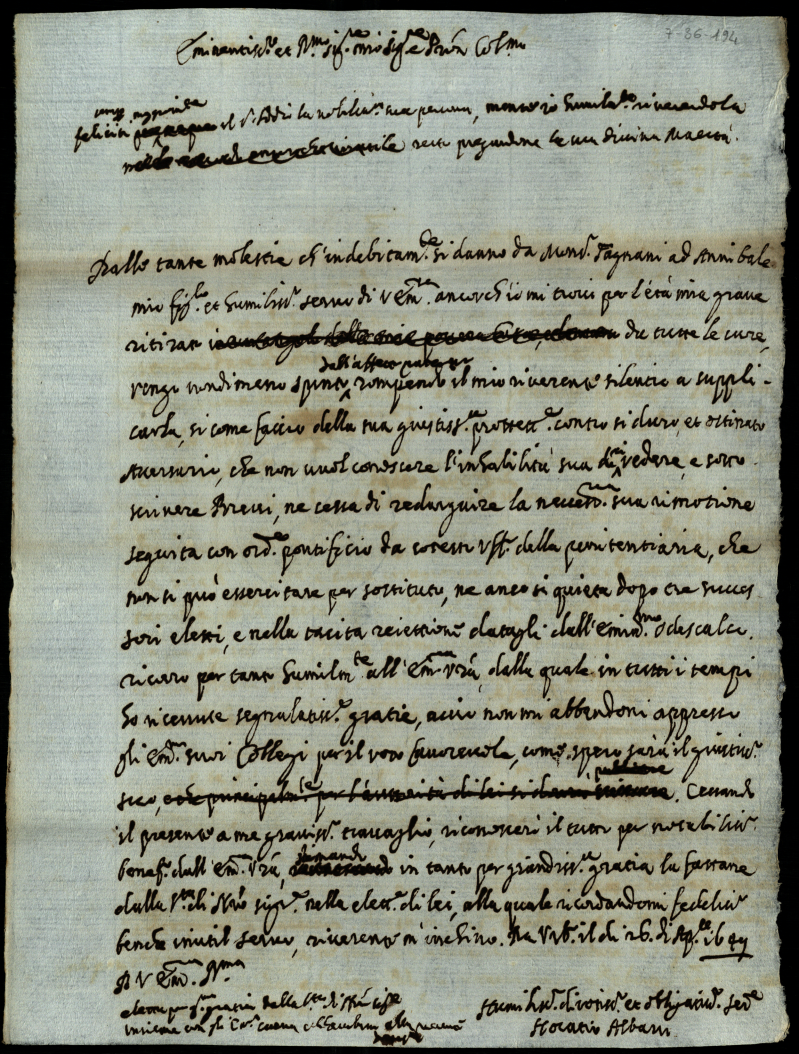 7-36-194
Eminentiss.o et R.mo Sig.re mio Sig.re e Pron Col.mo
felicità il S. Iddio la nobiliss.a sua persona, mentre io humilm.te riverendola
resto pregandone la sua divina Maestà.
Dalle tante molestie ch'indebitam.te si danno da Mons.r Fagnani ad Annibale
mio figlio et humiliss.o servo di V. Em.za ancorch'io mi trovi per l'età mia grave
ritirato da tutte le cure,
vengo nondimeno spinto dall'affetto paterno rompendo il mio riverente silentio a suppli-
carla, si come faccio della sua giustiss.a protett.e contro si duro, et ostinato
Aversario, che non vuol conoscere l'inhabilità sua di vedere, e sotto-
scrivere Brevi, ne cessa di redarguire la necess.ria sua rimotione
seguita con ord.e pontificio da cotesto Uff.o della penitentiaria, che
non si può essercitare per sostituto, ne anco si quieta dopo tre succes
sori eletti, e nella tacita reiettione datagli dall'Emin.mo Odescalco.
ricorro per tanto humilm.te all'Em.za V.ra, dalla quale in tutti i tempi
ho ricevute segnalatiss.e gratie, acciò non mi abbandoni appresso
gli Em.mi suoi Collegi per il voto favorevole, come spero sarà il giustiss.o
suo, e che principalm.te per l'auttorità di lei si
. Cessando
il presente a me graviss.o travaglio, riconoscerò il tutto per notabiliss.o
benef.o dall'Em.za V.ra, dimando in tanto per grandiss.a gratia la
dalla S.tà di N.ro Sig.re nella elett.e di lei, alla quale ricordandomi fedeliss.o
benche inutil servo, riverente m'inchino. Da Urb.o il dì 26. di Ap.le 1649
D. V. Em.za R.ma
gratia della S.tà di N.ro Sig.re
insieme con gli
Humiliss.o divotiss.o et obligatiss.o Ser.re
Horatio Albani